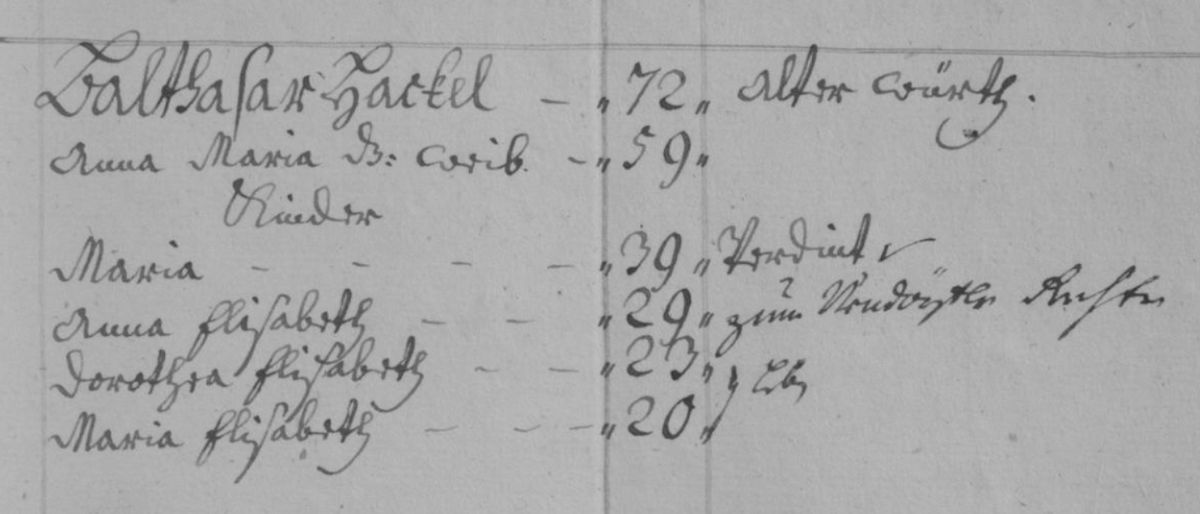 Balthasar Hackel — „ 72 „ Alter Würth.
Anna Maria d: Weib. — „ 59 „
Kinder
Maria — — — — „ 39 „ Verdint
Anna Elisabeth — — „ 29 „ zum
Dorothea Elisabeth — — „ 23 „
Maria Elisabeth — — — „ 20 „